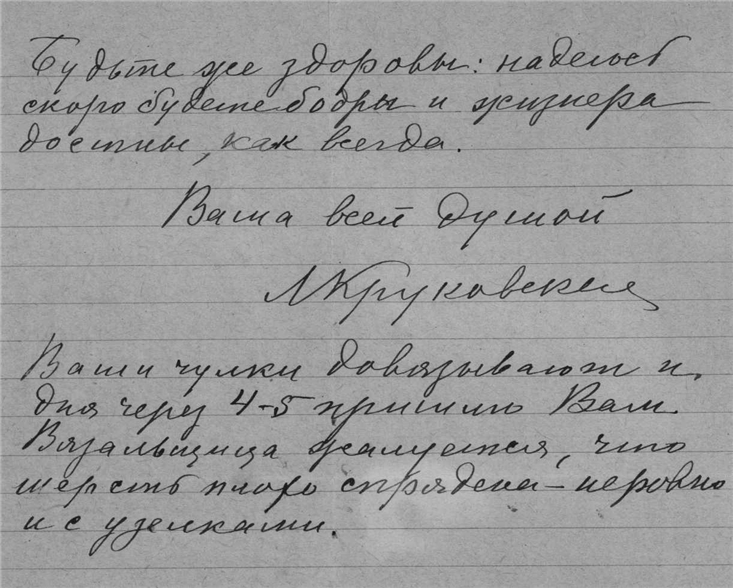 Будьте же здоровы: надеюсь
скоро будете бодры и жизнера
достны, как всегда.
Ваша всей душой
ЛКруковская
Ваши чулки довязывают и
дня через 4-5 пришлю Вам.
Вязальщица жалуется, что
шерсть плохо спрядена – неровно
и с узелками.